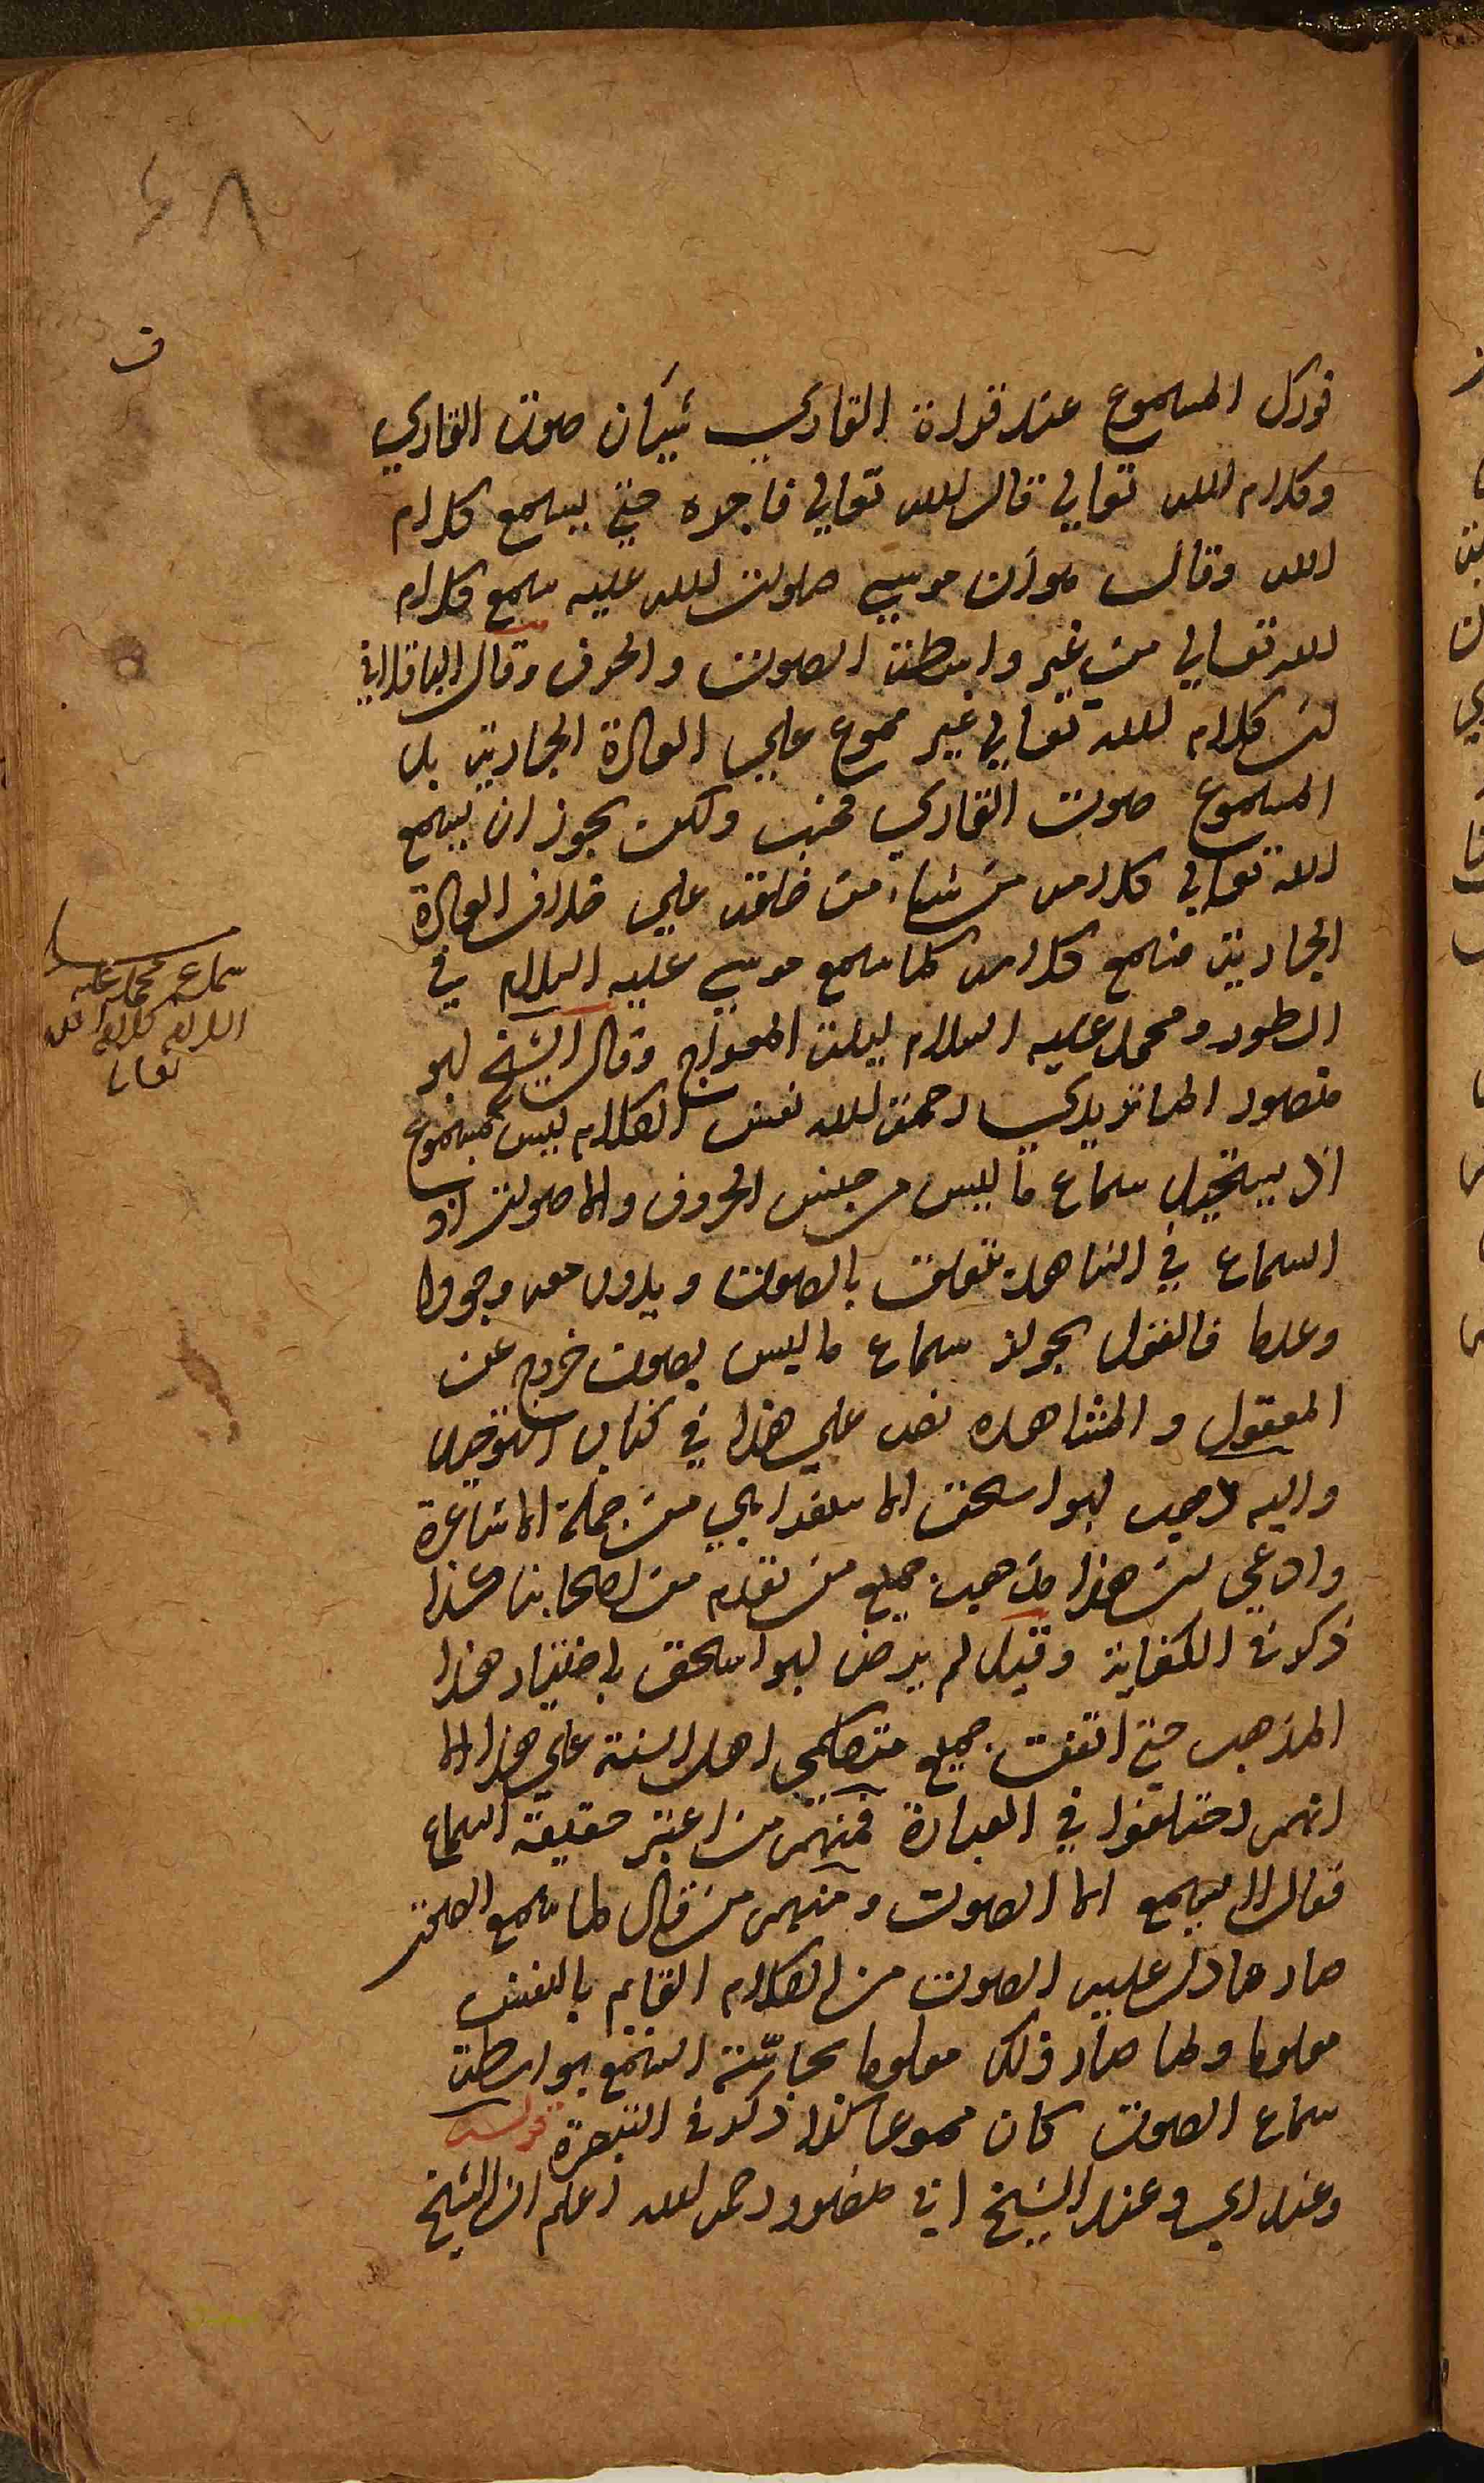 ٤٨
ف
فورك المسموع عند قراءة القاري شيئان صوت القاري
وكلام الله تعالى قال الله تعالى فاجره حتى يسمع كلام
الله وقال هو ان موسى صلوات الله عليه سمع كلام
الله تعالى من غير واسطة الصوت والحرف وقال الباقلاني
ان كلام الله تعالى غير مسموع على العادة الجارية بل
المسموع صوت القاري فحسب ولكن يجوز ان يسمع
الله تعالى كلامه من شاء من خلقه على خلاف العادة
الجارية فسمع كلامه كما سمع موسى عليه السلام في
الطور ومحمد عليه السلام ليلة المعراج وقال الشيخ ابو
منصور الماتريدي رحمة الله نفس الكلام ليس بمسموع
اذ يستحيل سماع ما ليس من جنس الحروف والاصوات اذ
السماع في الشاهد يتعلق بالصوت ويدور معه وجودا
وعدما فالقول بجواز سماع ما ليس بصوت خروج عن
المعقول والمشاهده نص على هذا في كتاب التوحيد
واليه ذهب ابو اسحق الاسفرايني من جملة الاشاعرة
وادعى ان هذا مذهب جميع من تقدم من اصحابنا هكذا
ذكر في الكفاية وقيل لم يرض ابو اسحق باختيار هذا
المذهب حتى اتفقت جميع متكلمي اهل السنة على هذا الا
انهم اختلفوا في العبارة فمنهم من اعتبر حقيقة السماع
فقال لا يسمع الا الصوت ومنهم من قال لما سمع الصوت
صار ما دل عليه الصوت من الكلام القايم بالنفس
معلوما ولما صار ذلك معلوما بحاسة السمع بواسطة
سماع الصوت كان مسموعا كذا ذكر في التبصرة قوله
وعند اي وعند الشيخ ابي منصور رحمه الله اعلم ان الشيخ
سماع محمد عليه
السلام كلام الله
تعالى